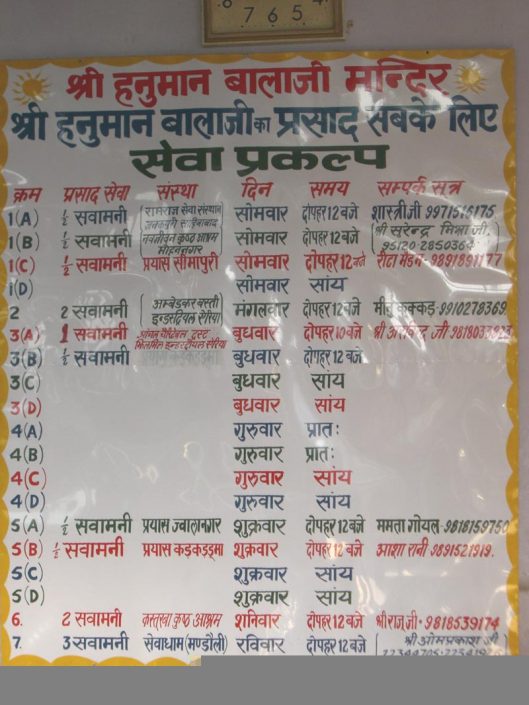 7 6 5
श्री हनुमान बालाजी मन्दिर
श्री हनुमान बालाजी का प्रसाद सबके लिए
सेवा प्रकल्प
क्रम प्रसाद सेवा संस्था दिन समय सम्पर्क सूत्र
1(A) ½ सवामनी सोमवार दोपहर 12 बजे शास्त्रीजी
1(B) ½ सवामनी सोमवार दोपहर 12 बजे श्री सुरेन्द्र मिश्रा जी
1(C) ½ सवामनी प्रयास सीमापुरी सोमवार दोपहर 12 बजे रीटा मैडम
1(D) सोमवार सांय
2 2 सवामनी अम्बेडकर बस्ती मंगलवार दोपहर 12 बजे 9910278369
3(A) 1 सवामनी बुधवार दोपहर 10 बजे
3(B) ½ सवामनी बुधवार दोपहर 12 बजे
3(C) बुधवार सांय
3(D) बुधवार सांय
4(A) गुरुवार प्रातः
4(B) गुरुवार प्रातः
4(C) गुरुवार सांय
4(D) गुरुवार सांय
5(A) ½ सवामनी प्रयास ज्वालानगर शुक्रवार दोपहर 12 बजे ममता गोयल-9818159750
5(B) ½ सवामनी प्रयास कड़कड़डूमा शुक्रवार दोपहर 12 बजे आशा रानी-9891521919.
5(C) शुक्रवार सांय
5(D) शुक्रवार सांय
6. 2 सवामनी कुष्ठ आश्रम शनिवार दोपहर 12 बजे श्री राजू जी-9818539174
7. 3 सवामनी सेवाधाम (मण्डौली) रविवार दोपहर 12 बजे श्री ओमप्रकाश जी